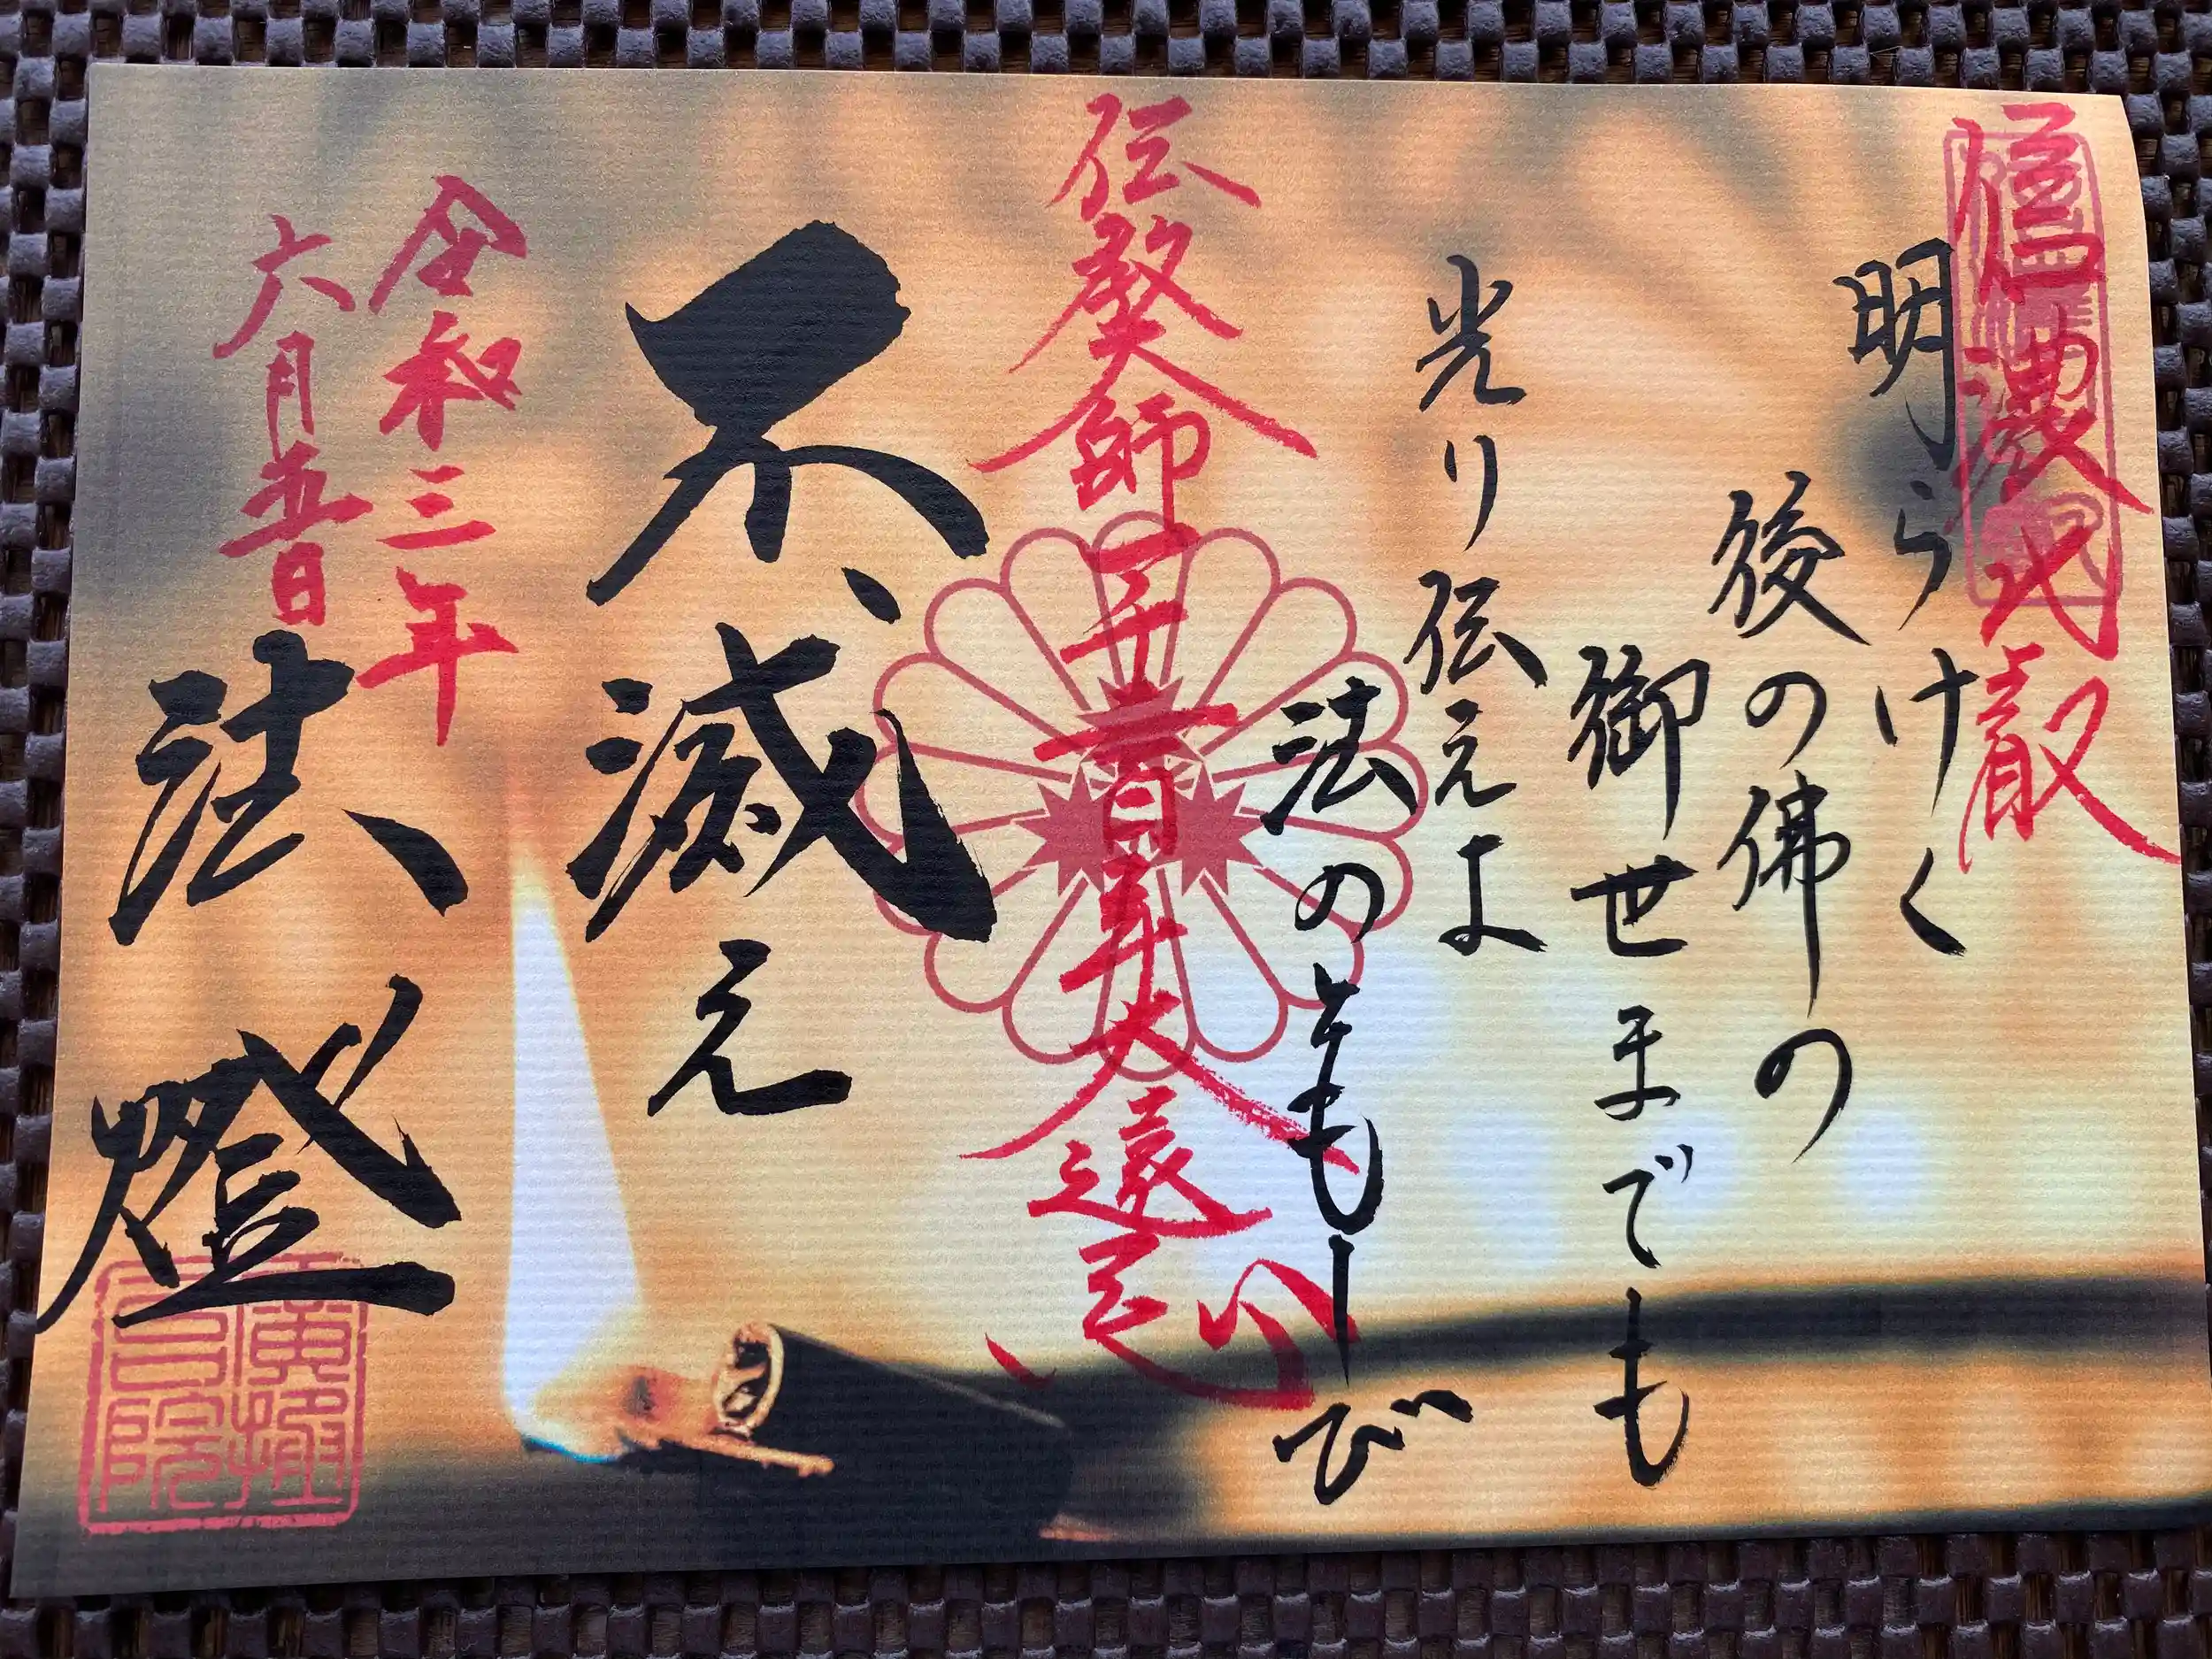 信濃比叡
明らけく
後の佛の
御世までも
光り伝えよ
法のともしび
伝教大師一千二百年大遠忌
不滅之
法燈
令和三年
六月日